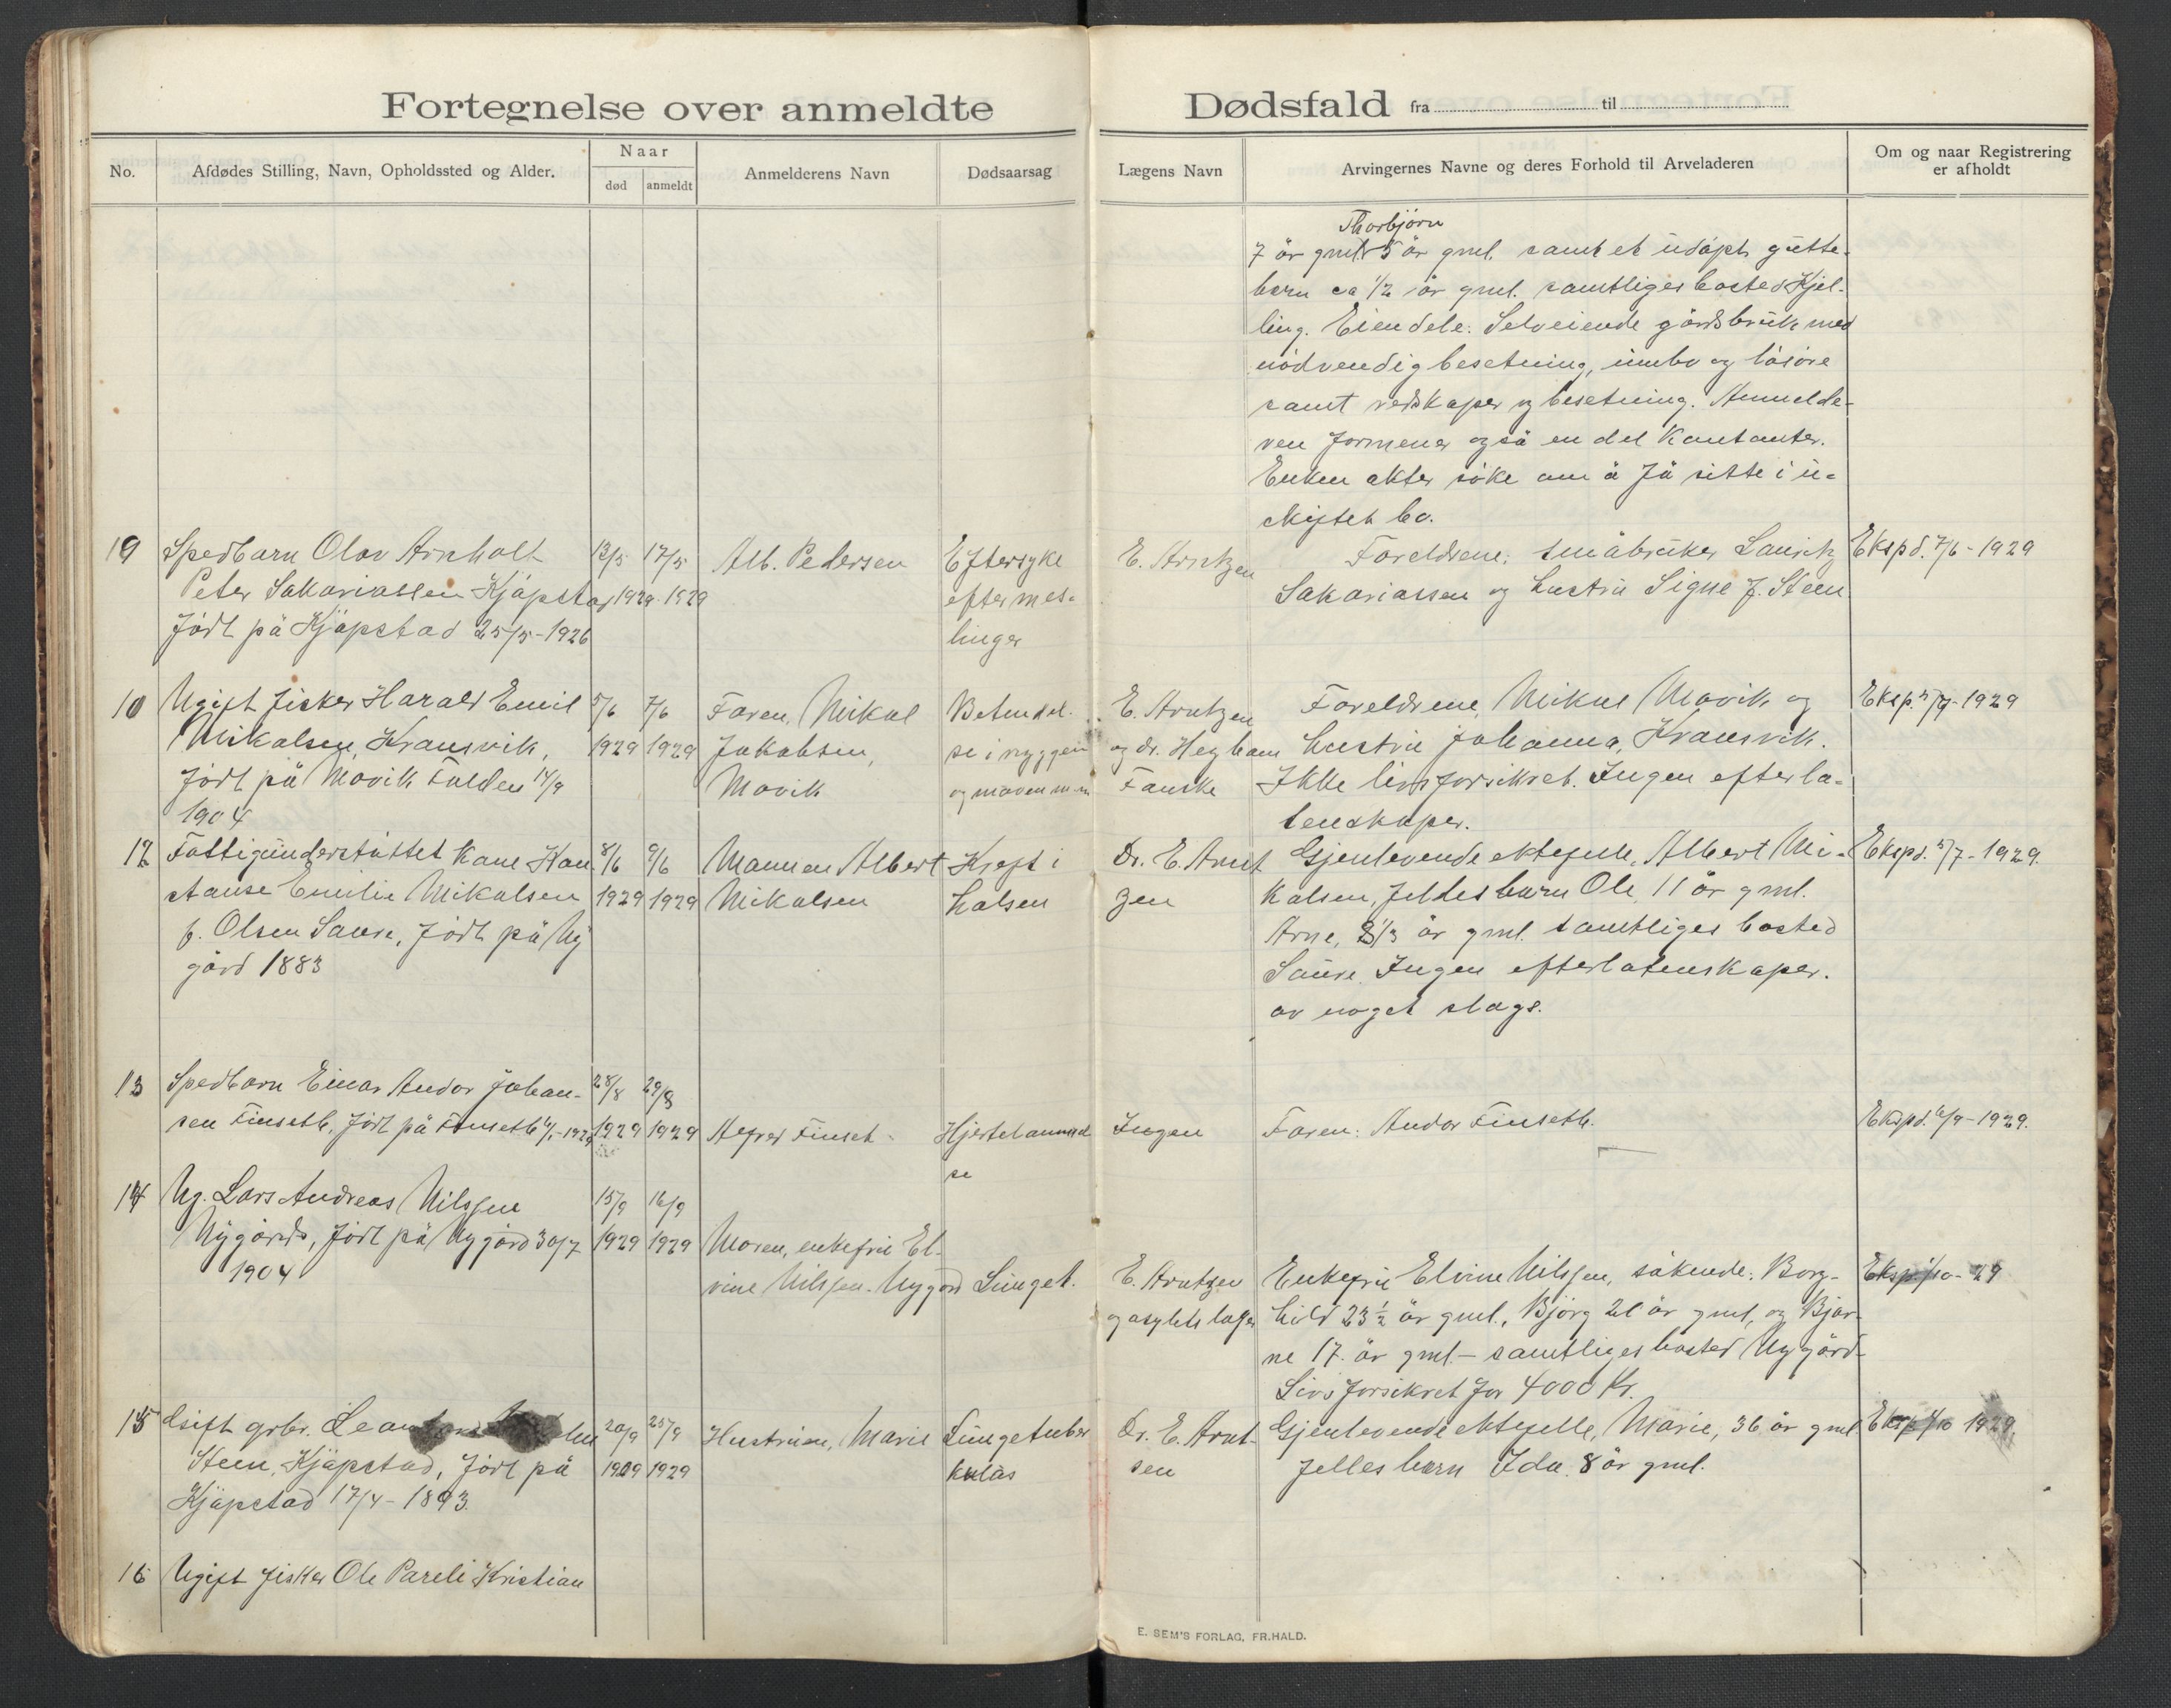 Fortegnelse over anmeldte
Dødsfald fra til
No.
Afdødes Stilling, Navn, Opholdssted og Alder.
Naar
død
anmeldt
Anmelderens Navn
Dødsaarsag
Lægens Navn
Arvingernes Navne og deres Forhold til Arveladeren
Om og naar Registrering
er afholdt
Thorbjörn
7 år gml. 5 år gml. samt et udöpt gutte-
barn ca 1/2 år gml. samtliges bosted Kjel-
ling. Eiendele: Selveiende gårdsbruk med
nödvendig besetning, innbo og lösöre
samt redskaper og besetning. Anmelde-
ren formener også en del Kontanter.
Enken akter söke om å få sitte i u-
skiftet bo.
19
Spedbarn Olav Arnholt
Peter Sakariassen Kjöpstad
födt på Kjöpstad 25/5-1926
13/5
1929
17/5
1929
Alb. Pedersen
Eftersyke
efter mes-
linger
E. Arntzen
Foreldrene: småbruker Laurits
Sakariassen og hustru Signe f. Steen
Ekspd. 7/6-1929
10
Ugift fisker Harald Emil
Mikalsen, Kransvik,
födt på Movik Folden 14/9
1904
5/6
1929
7/6
1929
Faren, Mikal
Jakobsen,
Movik
Betendel-
se i ryggen
og maven m.m
E. Arntzen
og dr. Heyham
Fauske
Foreldrene, Mikal Movik og
hustru Johanna, Kransvik.
Ikke livsforsikret. Ingen efterla-
tenskaper.
Eksp. 5/7-1929
12
Fattigunderstöttet Kone Kon-
stanse Emilie Mikalsen
f. Olsen Saure, födt på Ny
gård 1883
8/6
1929
9/6
1929
Mannen Albert
Mikalsen
Kreft i
halsen
Dr. E. Arnt
zen
Gjenlevende ektefelle, Albert Mi-
kalsen, felles barn Ole, 11 år gml.
Arne, 8 1/3 år gml. samtliges bosted
Saure. Ingen efterlatenskaper.
av noget slags.
Ekspd. 5/7-1929.
13
Spedbarn Einar Andor Johan-
sen Finseth, födt på Finseth 1929
28/8
1929
29/8
1929
Alfred Finset
Hjertelammel
se
Ingen
Faren: Andor Finseth.
Ekspd. 6/9-1929.
14
Ug. Lars Andreas Nilssen
Nygård, födt på Nygård 30/7
1904
15/9
1929
16/9
1929
Moren, enkefru El-
vine Nilssen. Nygård
Lunget.
E. Arntzen
og asylets læge
Enkefru Elvine Nilssen, söskende: Borg-
hild 23 1/2 år gml., Björg 20 år gml, og Bjar-
ne 17 år gml. - samtliges bosted Nygård-
Livsforsikret for 4000 Kr.
Eksp. 1/10-29
15
Gift grbr.
Steen, Kjöpstad, födt på
Kjöpstad 17/4-1893.
20/9
1929
25/9
1929
Hustruen, Marie
Lungetuber
kulos
Dr. E. Arnt-
sen
Gjenlevende ektefelle, Marie, 36 år gml
felles barn Ida 8 år gml.
Eksp. 1/10 1929.
16
Ugift fisker Ole Pareli Kristian
E. SEM'S FORLAG, FR.HALD.